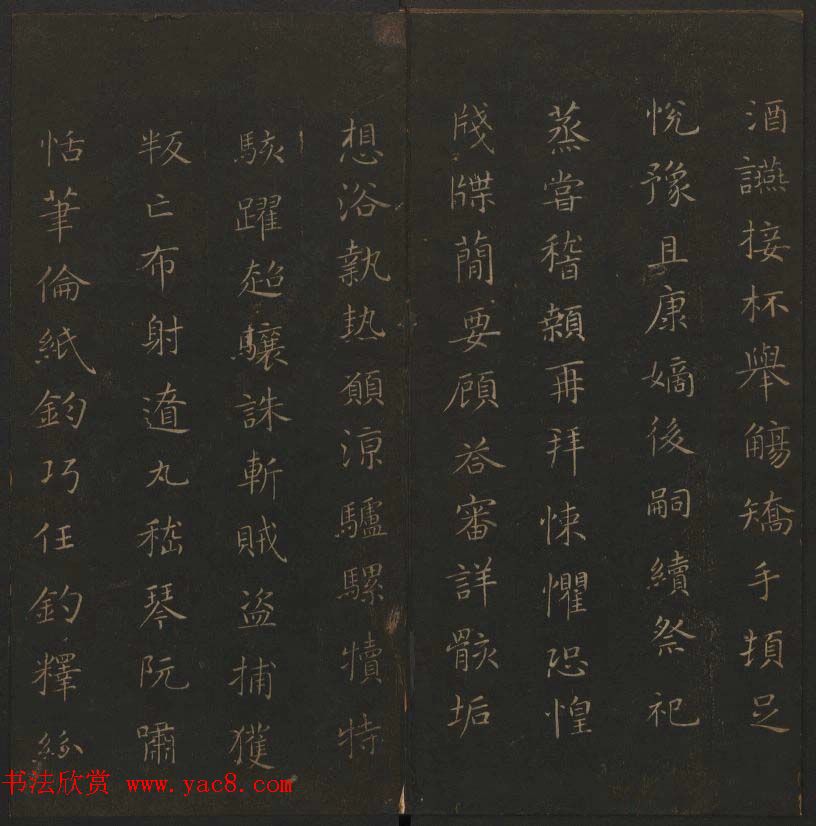 酒讌接杯舉觴矯手頓足
悅豫且康嫡後嗣續祭祀
蒸嘗稽顙再拜悚懼恐惶
牋牒簡要顧荅審詳骸垢
想浴執熱願涼驢騾犢特
駭躍超驤誅斬賊盜捕獲
叛亡布射遼丸嵇琴阮嘯
恬筆倫紙鈞巧任釣釋紛
书法欣赏 www.yac8.com